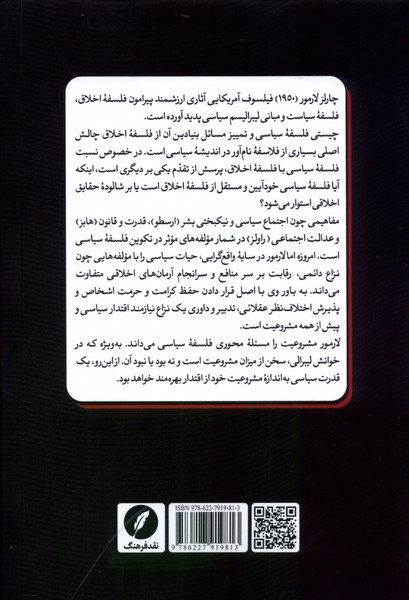 چارلز لارمور (۱۹۵۰) فیلسوف آمریکایی آثاری ارزشمند پیرامون فلسفهٔ اخلاق،
فلسفهٔ سیاست و مبانی لیبرالیسم سیاسی پدید آورده است.
چیستی فلسفهٔ سیاسی و تمییز مسائل بنیادین آن از فلسفهٔ اخلاق چالش
اصلی بسیاری از فلاسفهٔ نام‌آور در اندیشهٔ سیاسی است. در خصوص نسبت
فلسفهٔ سیاسی با فلسفهٔ اخلاق، پرسش از تقدّم یکی بر دیگری است، اینکه
آیا فلسفهٔ سیاسی خودآیین و مستقل از فلسفهٔ اخلاق است یا بر شالودهٔ حقایق
اخلاقی استوار می‌شود؟
مفاهیمی چون اجتماع سیاسی و نیکبختی بشر (ارسطو)، قدرت و قانون (هابز)
و عدالت اجتماعی (راولز) در شمار مؤلفه‌های مؤثر در تکوین فلسفهٔ سیاسی
است. امروزه اما لارمور در سایهٔ واقع‌گرایی، حیات سیاسی را با مؤلفه‌هایی چون
نزاع دائمی، رقابت بر سر منافع و سرانجام آرمان‌های اخلاقی متفاوت
می‌داند. به باور وی با اصل قرار دادن حفظ کرامت و حرمت اشخاص و
پذیرش اختلاف‌نظر عقلانی، تدبیر و داوری یک نزاع نیازمند اقتدار سیاسی و
پیش از همه مشروعیت است.
لارمور مشروعیت را مسئلهٔ محوری فلسفهٔ سیاسی می‌داند. به‌ویژه که در
خوانش لیبرالی، سخن از میزان مشروعیت است و نه بود یا نبود آن. ازاین‌رو، یک
قدرت سیاسی به‌اندازهٔ مشروعیت خود از اقتدار بهره‌مند خواهد بود.
نقدفرهنگ
ISBN 978-622-7919-81-3
9 786227 919813